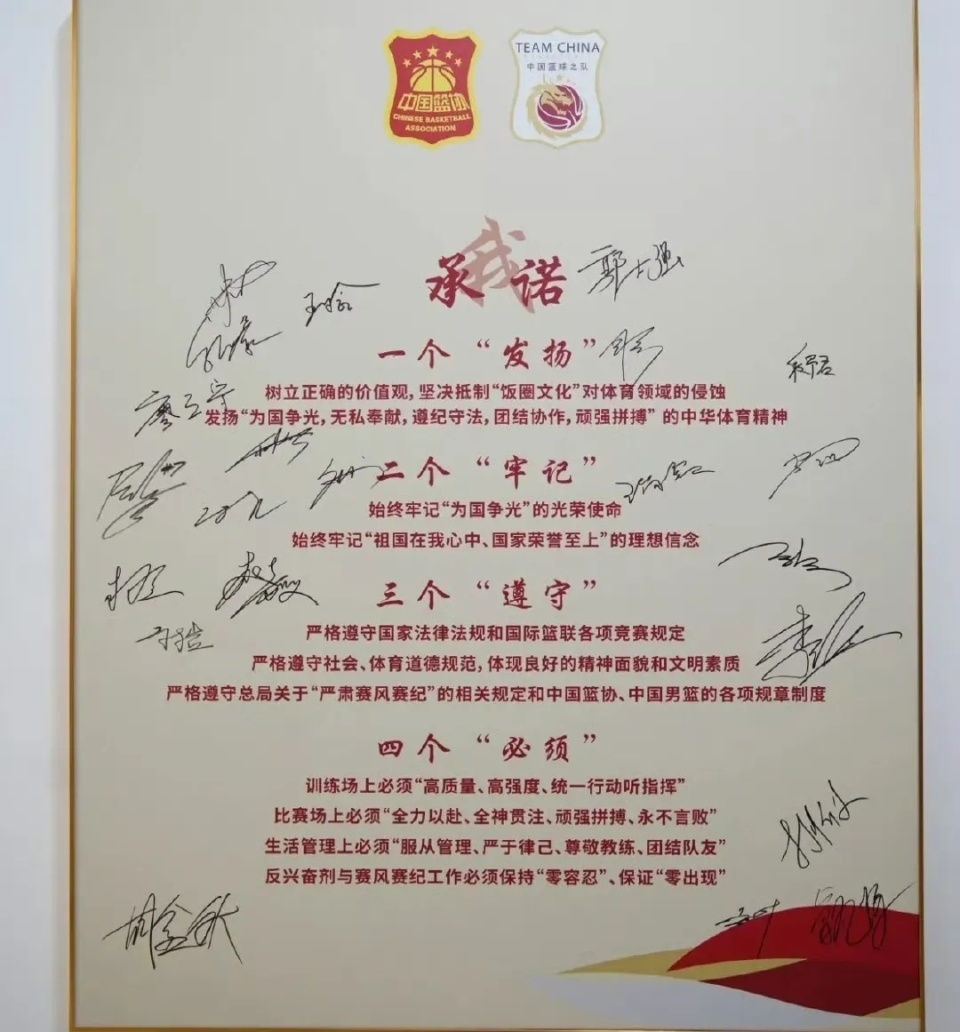 中国篮协
CHINESE BASKETBALL
ASSOCIATION
TEAM CHINA
中国篮球之队
我
承诺
郭士强
一个“发扬”
树立正确的价值观,坚决抵制“饭圈文化”对体育领域的侵蚀
廖三宁
发扬“为国争光,无私奉献,遵纪守法,团结协作,顽强拼搏”的中华体育精神
二个“牢记”
始终牢记“为国争光”的光荣使命
始终牢记“祖国在我心中、国家荣誉至上”的理想信念
三个“遵守”
严格遵守国家法律法规和国际篮联各项竞赛规定
严格遵守社会、体育道德规范,体现良好的精神面貌和文明素质
严格遵守总局关于“严肃赛风赛纪”的相关规定和中国篮协、中国男篮的各项规章制度
四个“必须”
训练场上必须“高质量、高强度、统一行动听指挥”
比赛场上必须“全力以赴、全神贯注、顽强拼搏、永不言败”
生活管理上必须“服从管理、严于律己、尊敬教练、团结队友”
反兴奋剂与赛风赛纪工作必须保持“零容忍”、保证“零出现”
胡金秋